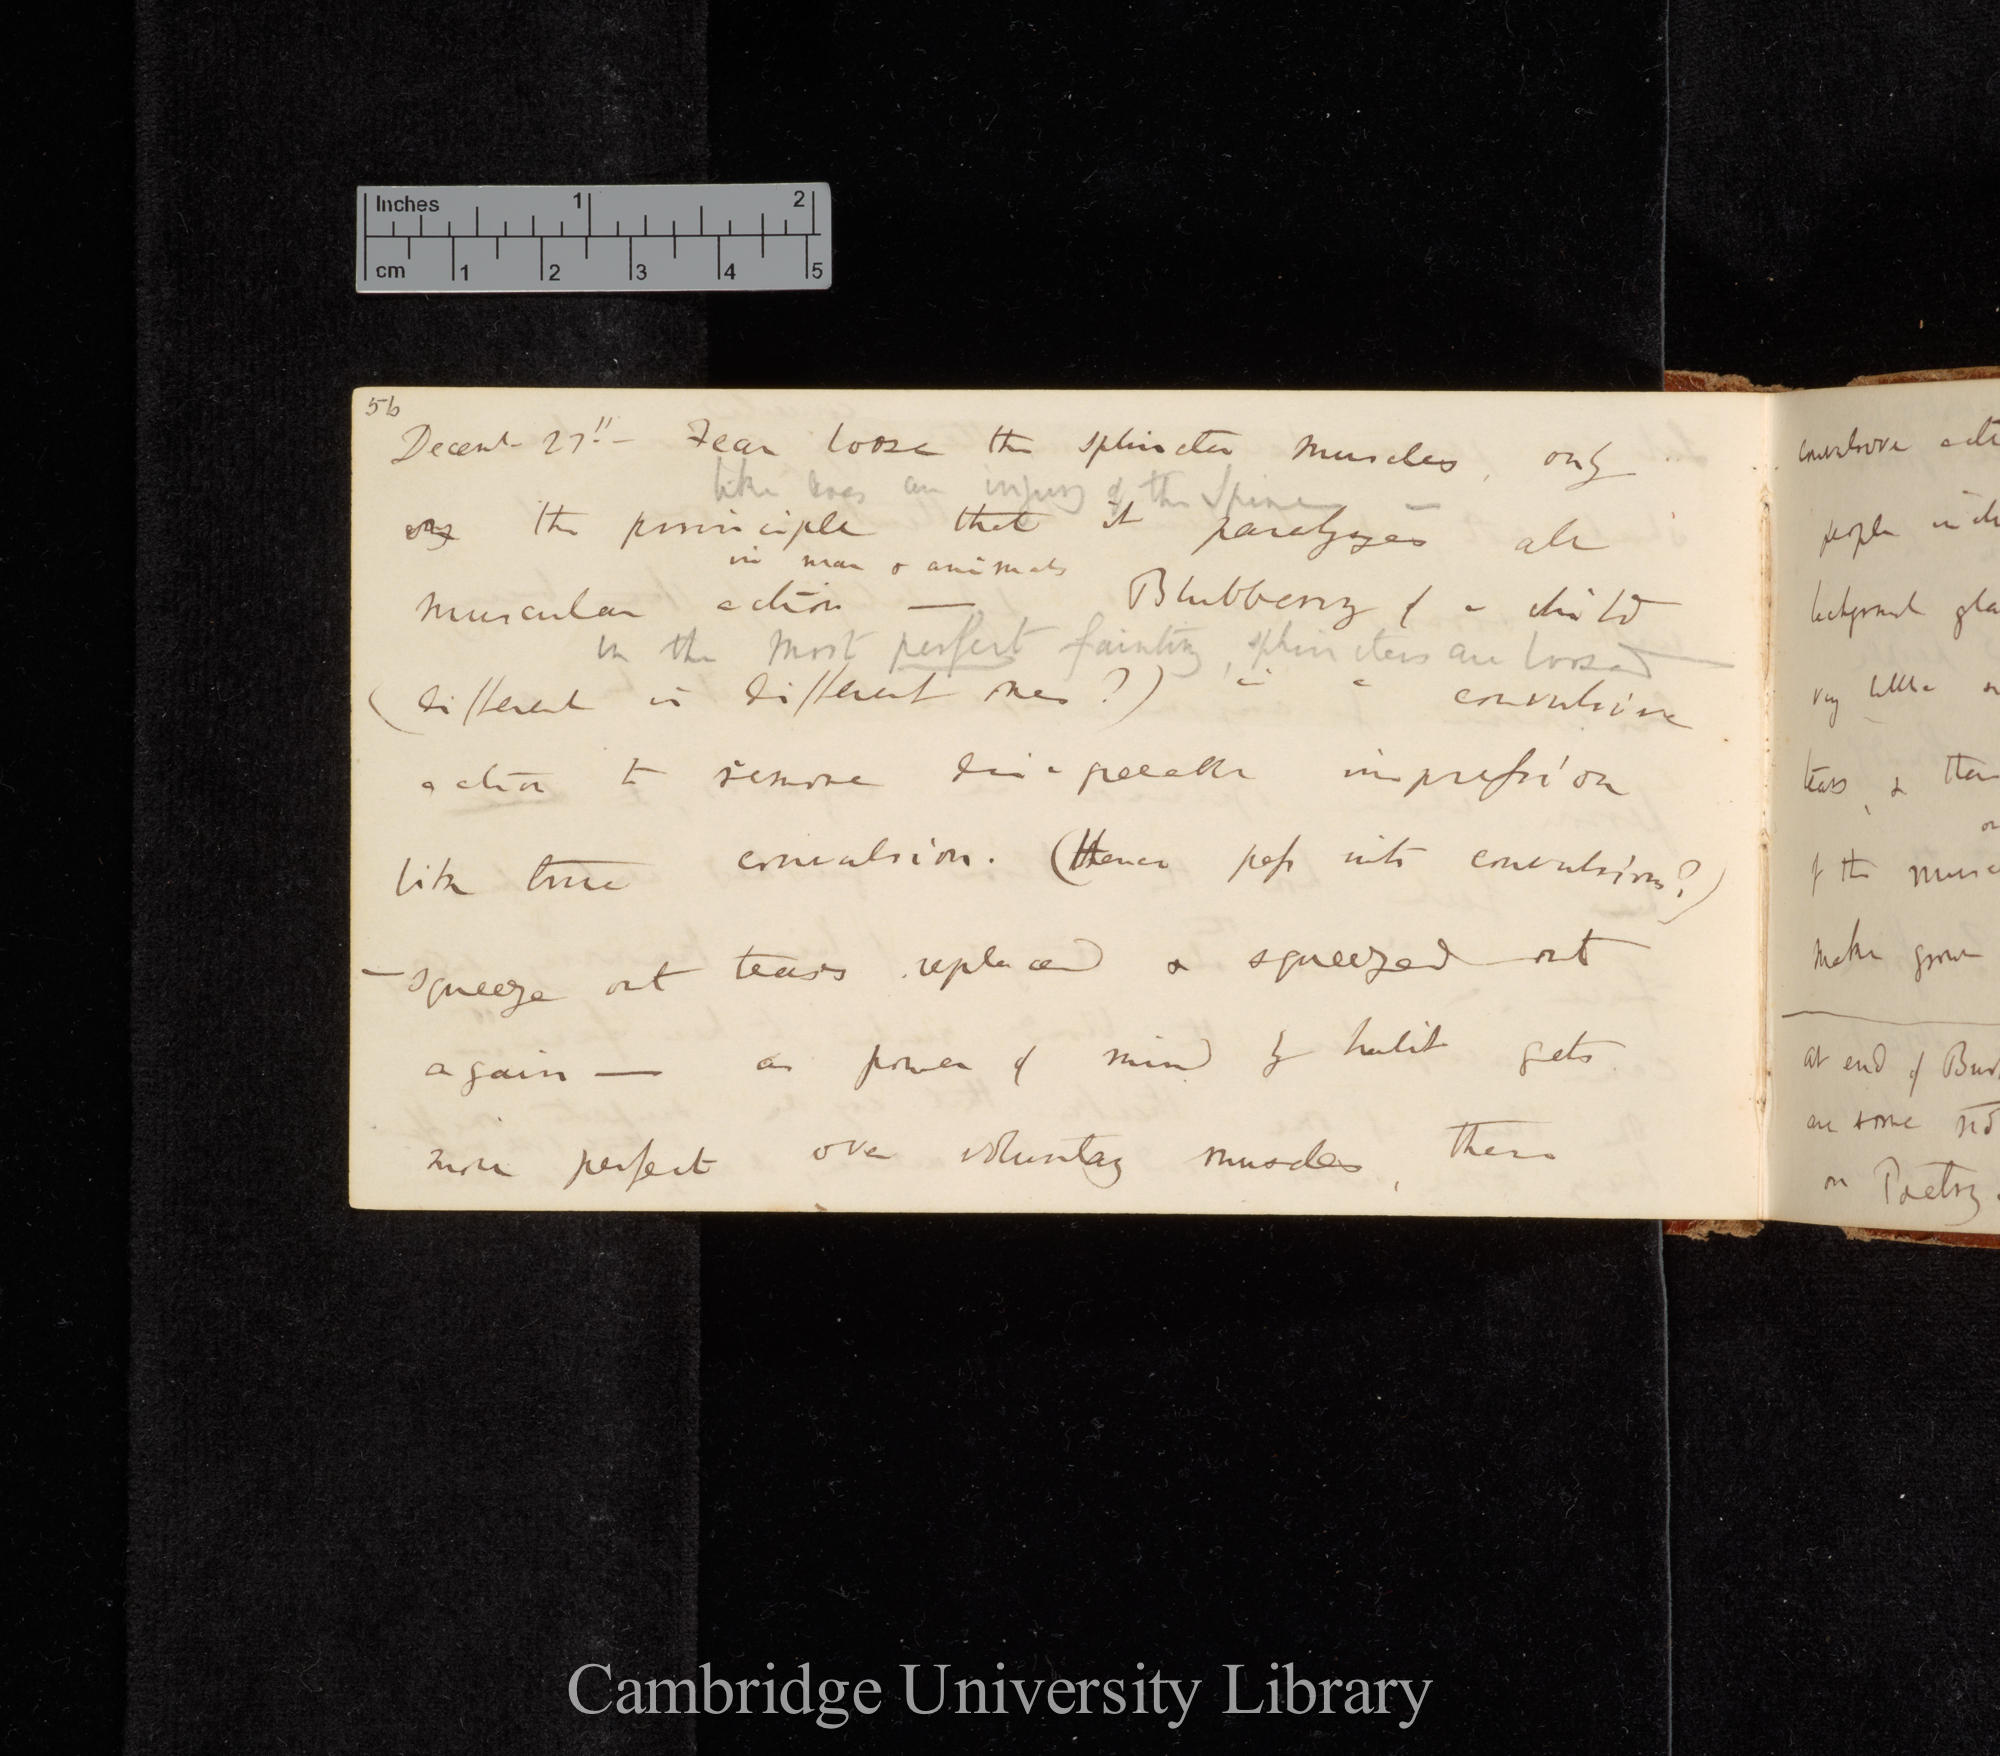 Inches 1 2
cm 1 2 3 4 5
56
Decemb 27th — Fear loose the sphincter muscles, only
like does an injury of the Spine —
only the principle that it paralyzes all
in man & animals
muscular action — Blubbering of a child
in the most perfect fainting, sphincters are loosed —
(different in different ones?) is a convulsive
action to remove disagreeable impression
like true convulsion. (Hence pass into convulsions?)
— squeeze out tears replaced & squeezed out
again — as power of mind by habit gets
more perfect over voluntary muscles, these
convulsive acti
people
background gla
very little
tears, & then
of the musc
make grow
at end of Bur
are some
on Poetry.
Cambridge University Library